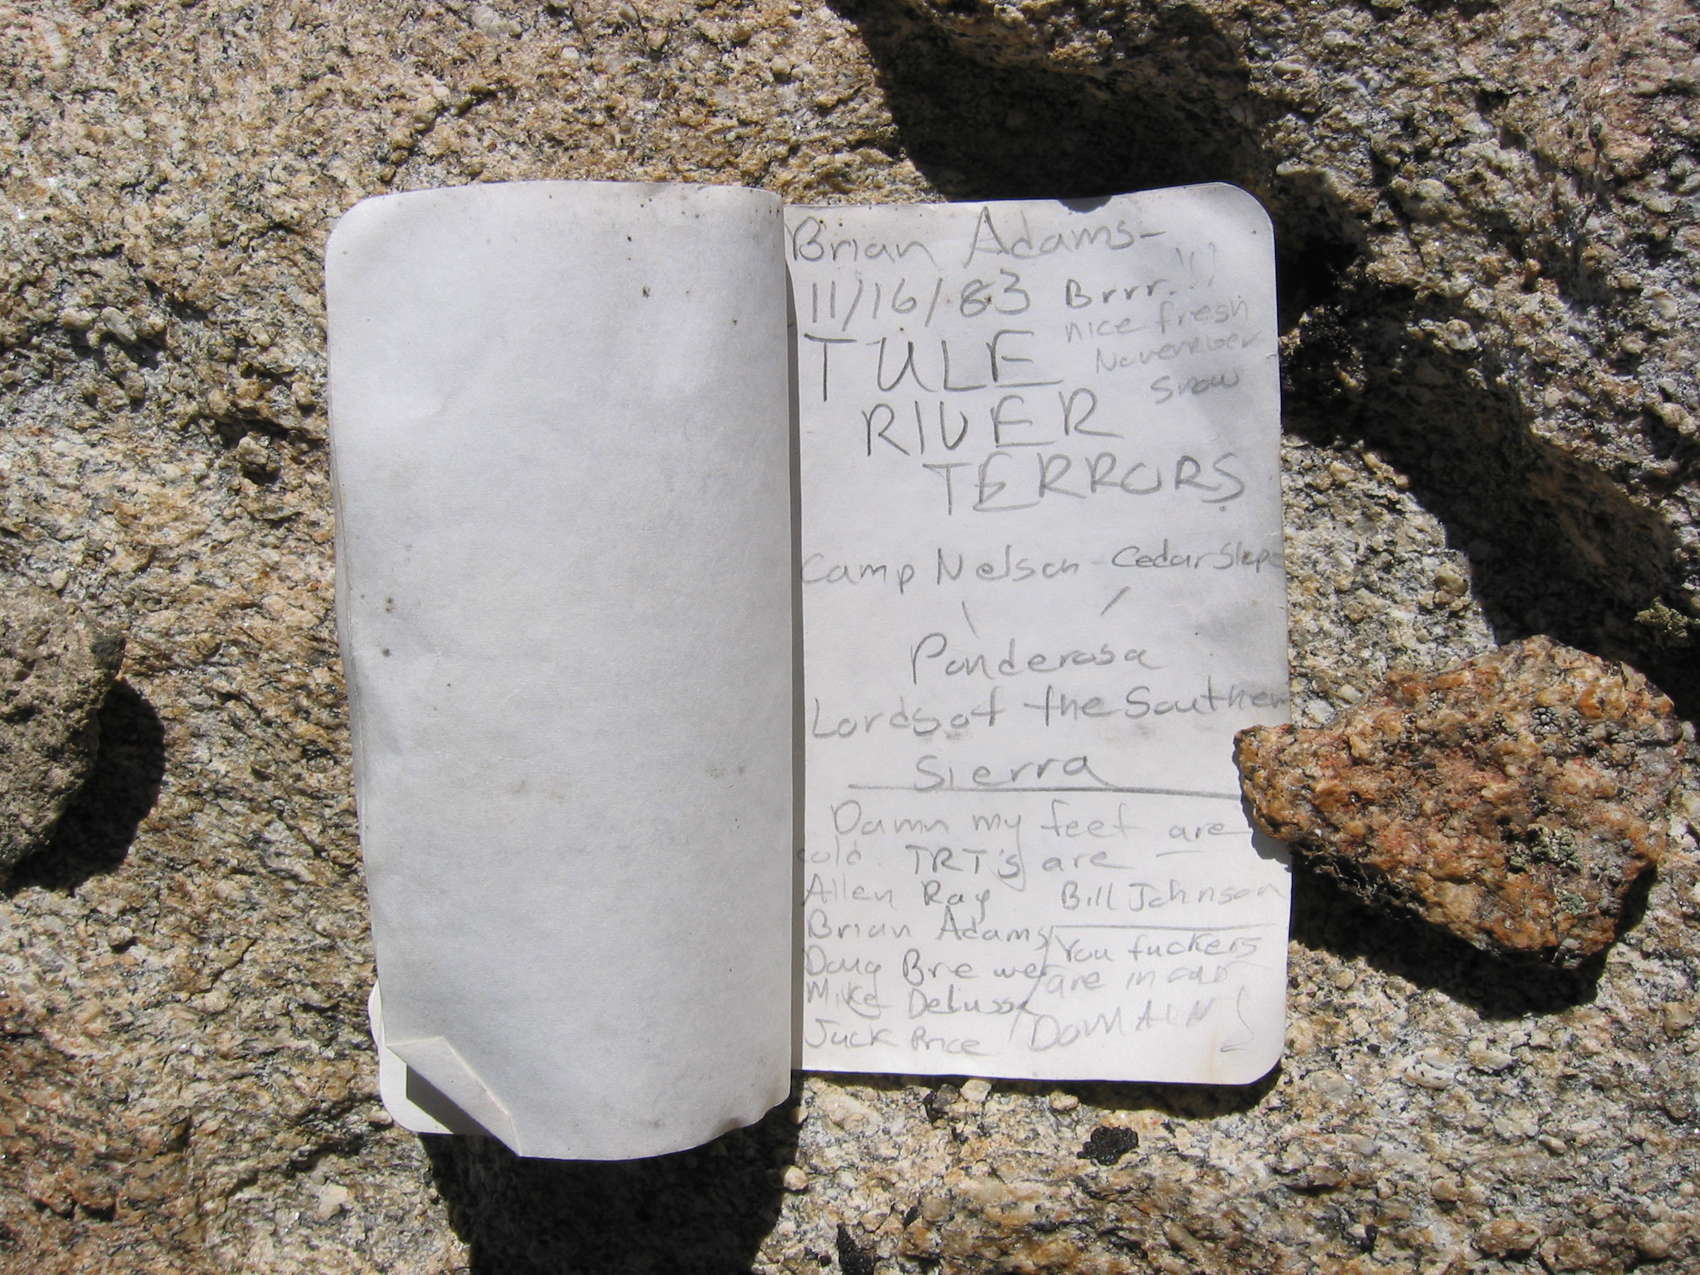 Brian Adams-
11/16/83 Brrr.!!!
nice fresh
November
Snow
TULE
RIVER
TERRORS
Camp Nelson - Cedar Slope
Ponderosa
Lords of the Southern
Sierra
Damn my feet are
cold. TRT's are —
Allen Ray
Bill Johnson
Brian Adams
Doug Brewer
Mike DeLussa
Jack Price
You fuckers
are in our
DOMAIN